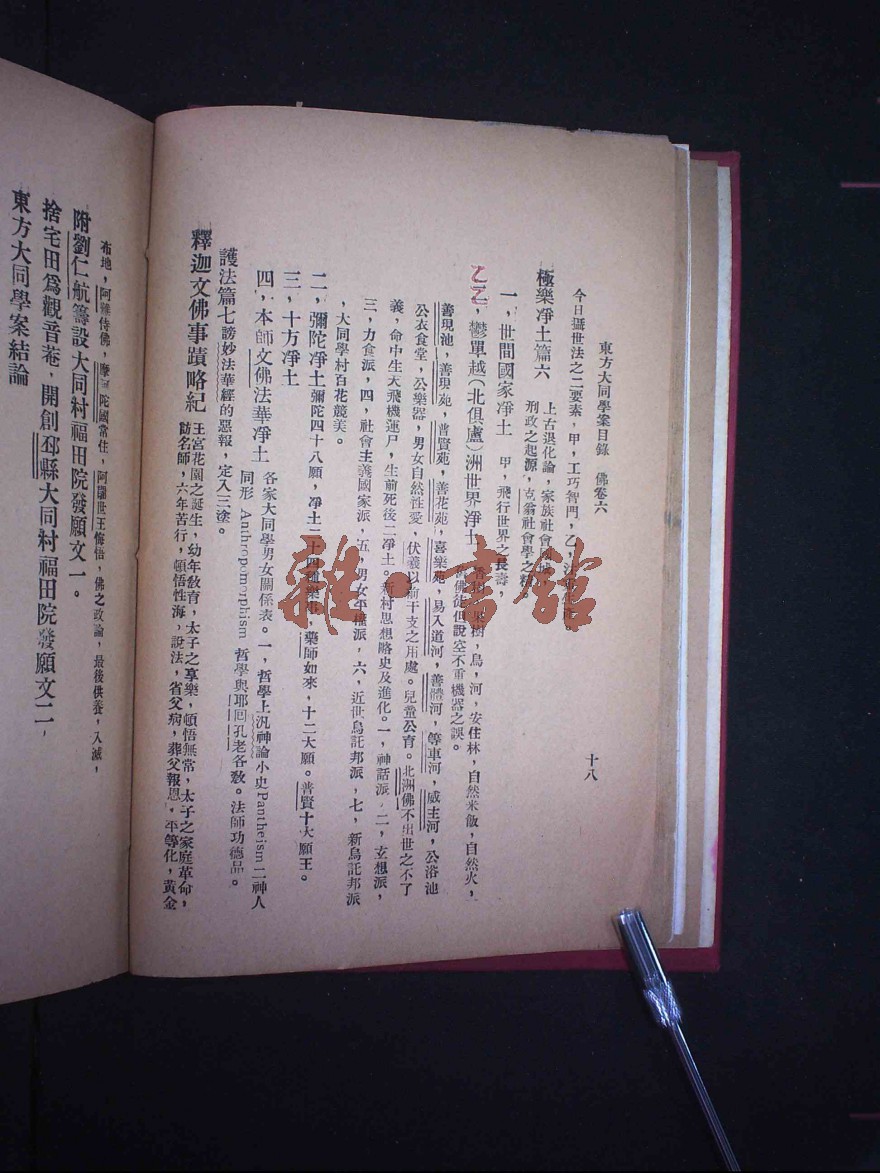 東方大同學案目錄　佛卷六　十八
今日攝世法之二要素，甲，工巧智門，乙，
極樂淨土篇六　上古退化論，家族社會國
刑政之起源，克翁社會學之
一，世間國家淨土　甲，飛行世界之長壽，
乙乙，鬱單越（北俱盧）洲世界淨土　香樹，果樹，鳥，河，安住林，自然米飯，自然火，
佛徒但說空不重機器之誤。
善現池，善現苑，普賢苑，善花苑，喜樂苑，易入道河，善體河，等車河，威主河，公浴池
公衣食堂，公樂器，男女自然性愛，伏羲以前干支之用處。兒童公育。北洲佛不出世之不了
義，命中生天飛機運尸，生前死後二淨土。新村思想略史及進化。一，神話派，二，玄想派，
三，力食派，四，社會主義國家派，五，男女平權派，六，近世烏託邦派，七，新烏託邦派
，大同學村百花競美。
二，彌陀淨土　彌陀四十八願，淨土二十四種樂事，藥師如來，十二大願。普賢十大願王。
三，十方淨土
四，本師文佛法華淨土　各家大同學男女關係表。一，哲學上汎神論小史Pantheism二神人
同形 Anthropomorphism 哲學與耶回孔老各教。法師功德品。
護法篇七　謗妙法華經的惡報，定入三塗。
釋迦文佛事蹟略紀　王宮花園之誕生，幼年敎育，太子之享樂，頓悟無常，太子之家庭革命，
訪名師，六年苦行，頓悟性海，說法，省父病，葬父報恩，平等化，黃金
布地，阿難侍佛，摩陀國常住，阿闍世王悔悟，佛之政論，最後供養，入滅，
附劉仁航籌設大同村福田院發願文一。
捨宅田爲觀音菴，開創邳縣大同村福田院發願文二，
東方大同學案結論
雜·書館